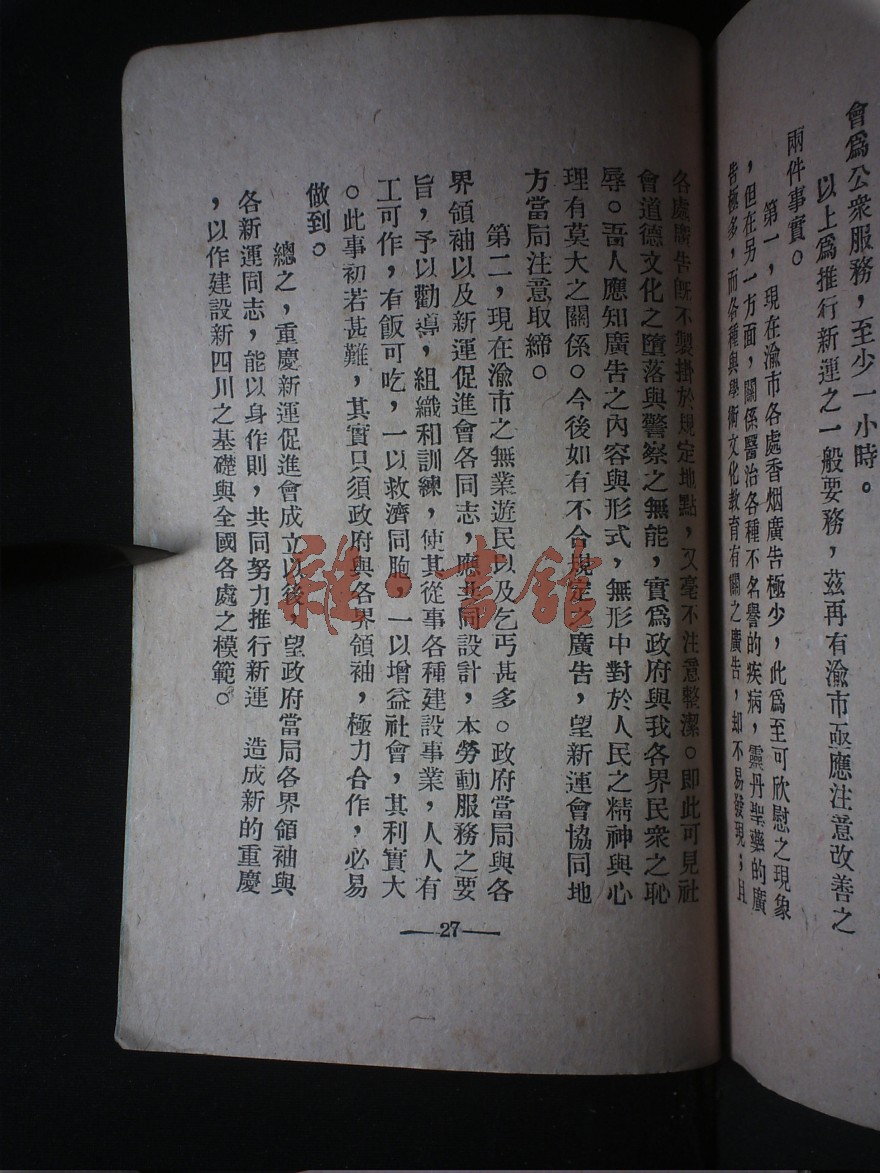 會爲公衆服務，至少一小時。
以上爲推行新運之一般要務，茲再有渝市亟應注意改善之
兩件事實。
第一，現在渝市各處香烟廣告極少，此爲至可欣慰之現象
，但在另一方面，關係醫治各種不名譽的疾病，靈丹聖藥的廣
告極多，而各種與學術文化教育有關之廣告，却不易發現；且
各處廣告旣不製掛於規定地點，又毫不注意整潔。卽此可見社
會道德文化之墮落與警察之無能，實爲政府與我各界民衆之恥
辱。吾人應知廣告之內容與形式，無形中對於人民之精神與心
理有莫大之關係。今後如有不合規定之廣告，望新運會協同地
方當局注意取締。
第二，現在渝市之無業遊民以及乞丐甚多。政府當局與各
界領袖以及新運促進會各同志，應共同設計，本勞動服務之要
旨，予以勸導，組織和訓練，使其從事各種建設事業，人人有
工可作，有飯可吃，一以救濟同胞，一以增益社會，其利實大
。此事初若甚難，其實只須政府與各界領袖，極力合作，必易
做到。
總之，重慶新運促進會成立以後，望政府當局各界領袖與
各新運同志，能以身作則，共同努力推行新運 造成新的重慶
，以作建設新四川之基礎與全國各處之模範。
—27—
雜·書館